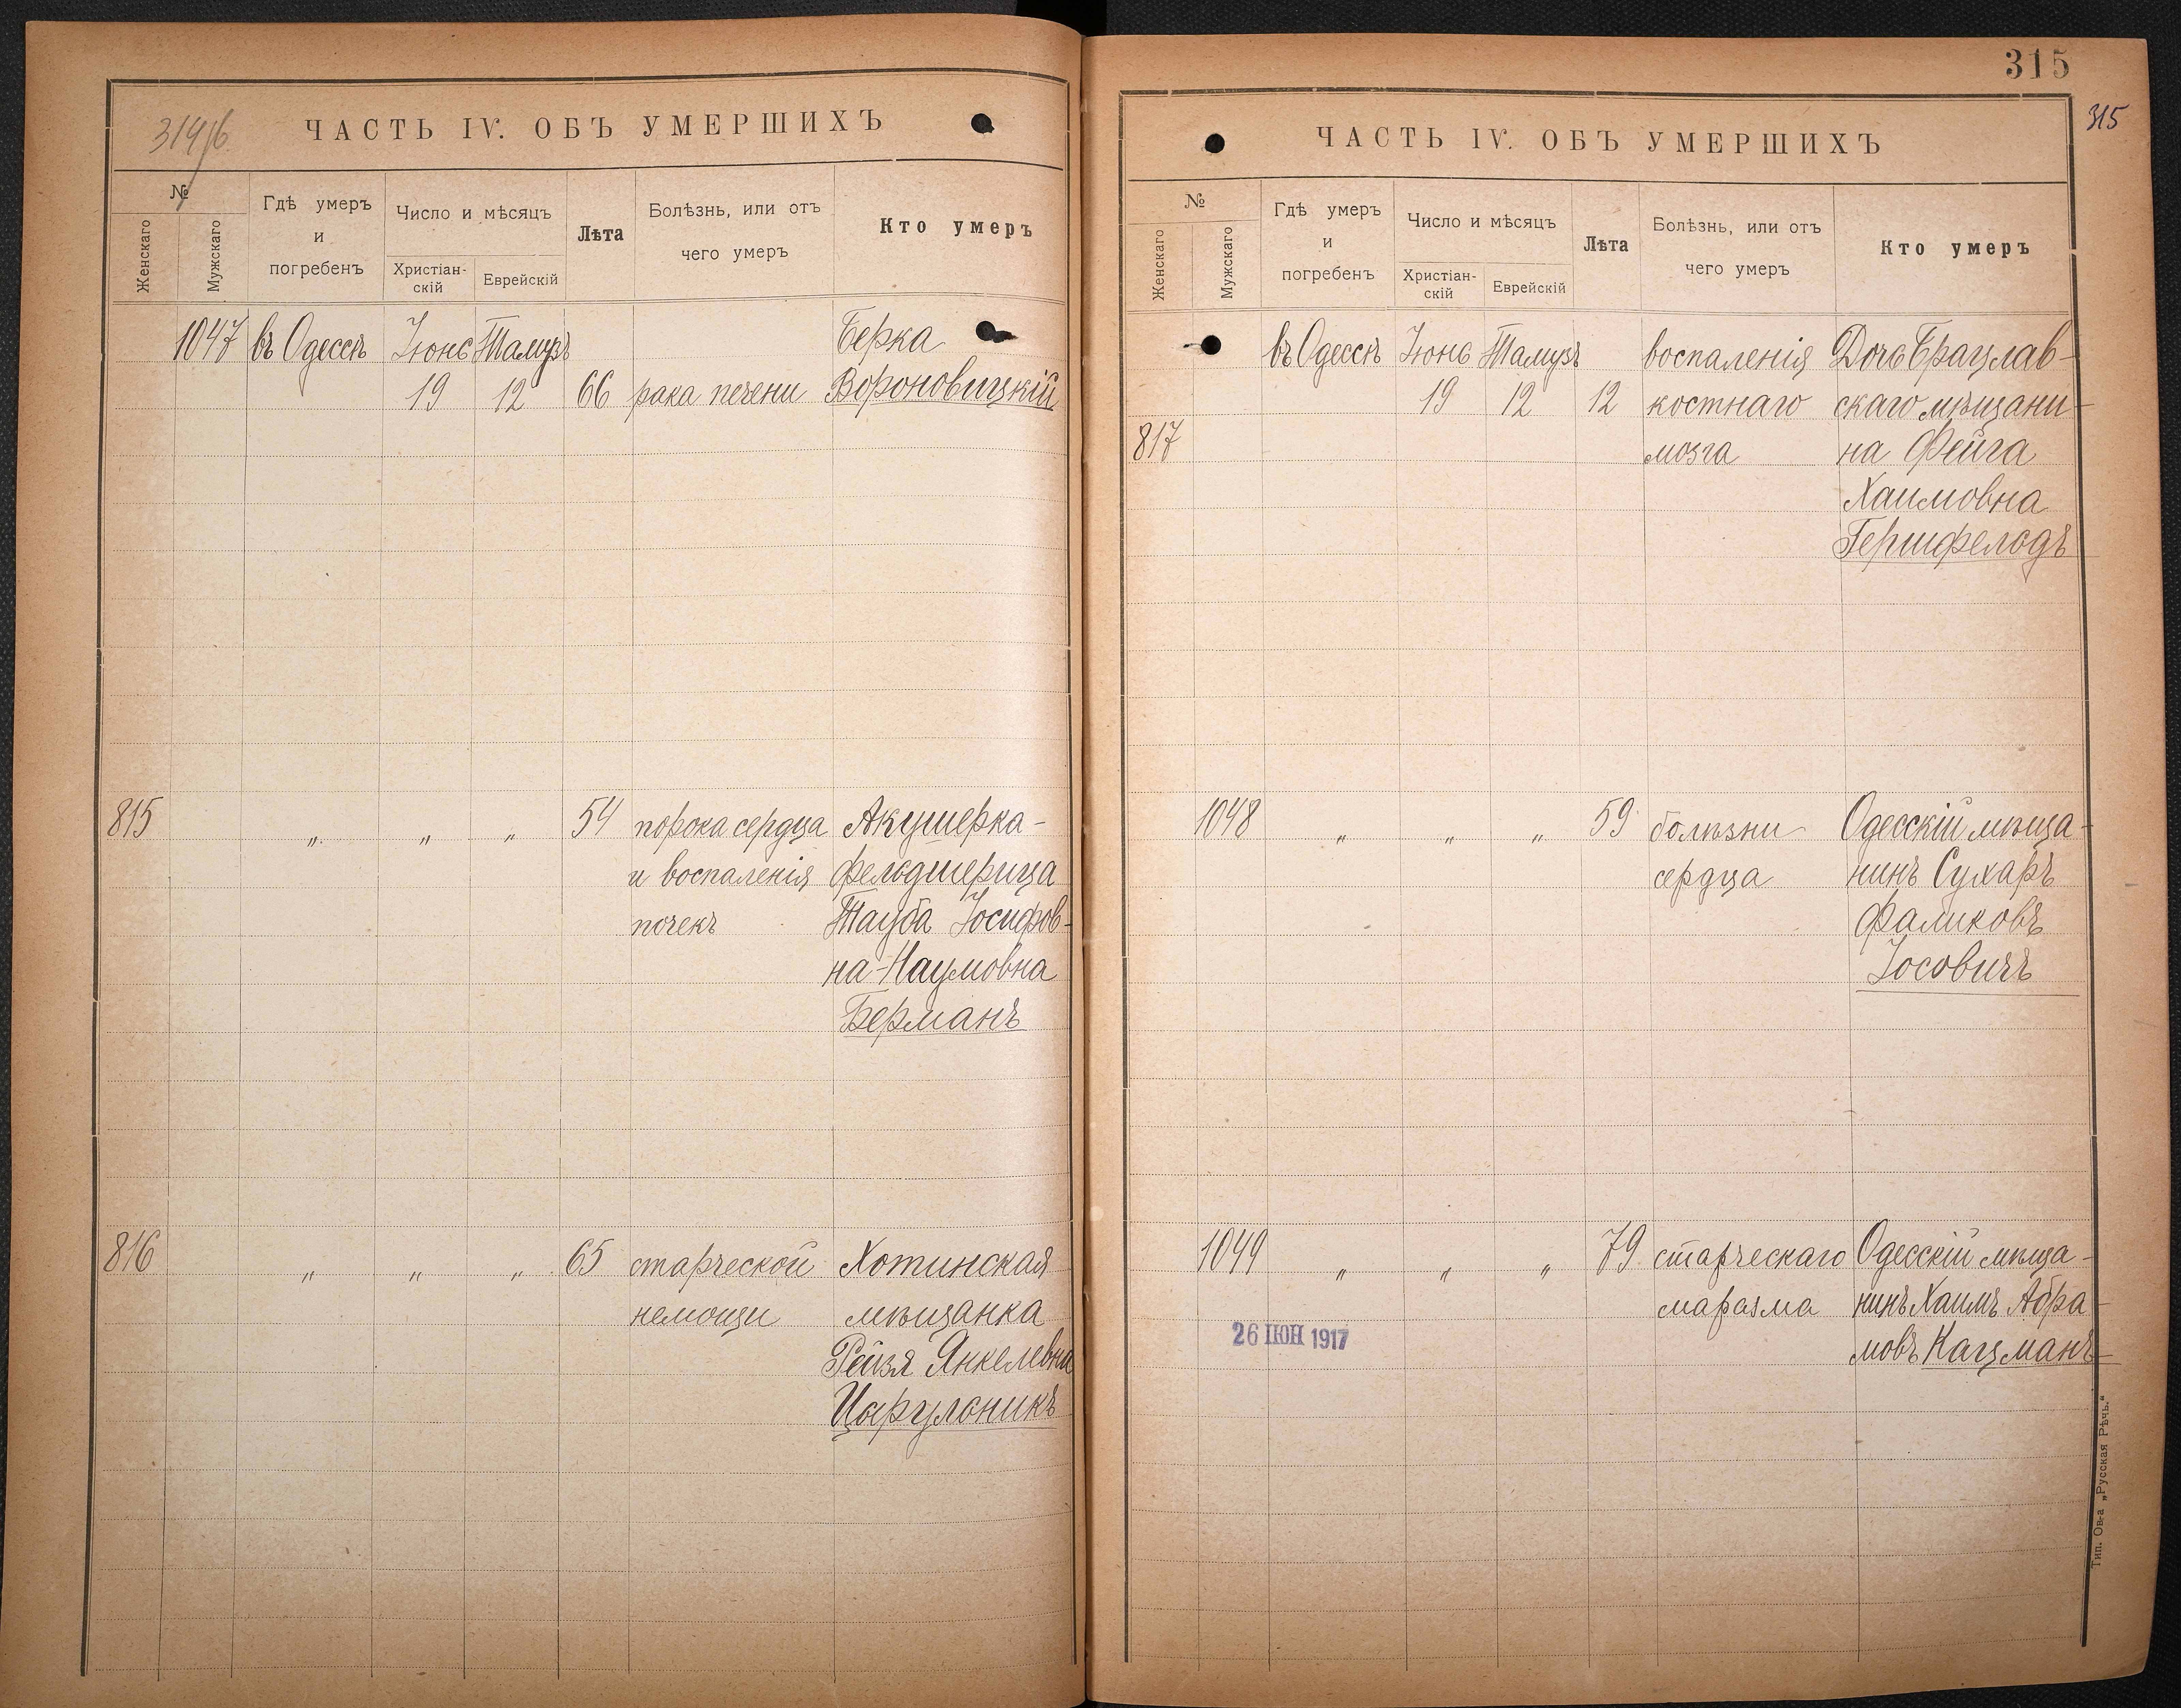 ЧАСТЬ IV. ОБЪ УМЕРШИХЪ
№
Женскаго
Мужскаго
Гдѣ умеръ
и
погребенъ
Число и мѣсяцъ
Христіан-
скій
Еврейскій
Лѣта
Болѣзнь, или отъ
чего умеръ
Кто умеръ
1047 въ Одессѣ Іюнь Тамузъ Берка
19 12 66 рака печени Вороновицкій
815 „ „ „ 54 порока сердца Акушерка-
и воспаленія фельдшерица
почекъ Тауба Іосифов-
на-Наумовна
Берманъ
816 „ „ „ 65 старческой Хотинская
немощи мѣщанка
Рейзя Янкелевна
Цирульникъ
315
315
ЧАСТЬ IV. ОБЪ УМЕРШИХЪ
№
Женскаго
Мужскаго
Гдѣ умеръ
и
погребенъ
Число и мѣсяцъ
Христіан-
скій
Еврейскій
Лѣта
Болѣзнь, или отъ
чего умеръ
Кто умеръ
въ Одессѣ Іюнь Тамузъ воспаленія Дочь Брацлав-
19 12 12 костнаго скаго мѣщани-
817 мозга на Фейга
Хаимовна
Гершфельдъ
1048 „ „ „ 59 болѣзни Одесскій мѣща-
сердца нинъ Сухаръ
Фаликовъ
Іосовичъ
1049 „ „ „ 79 старческаго Одесскій мѣща-
маразма нинъ Хаимъ Абра-
26 ІЮН 1917
мовъ Кацманъ
Тип. Ов-а „Русская Рѣчь."